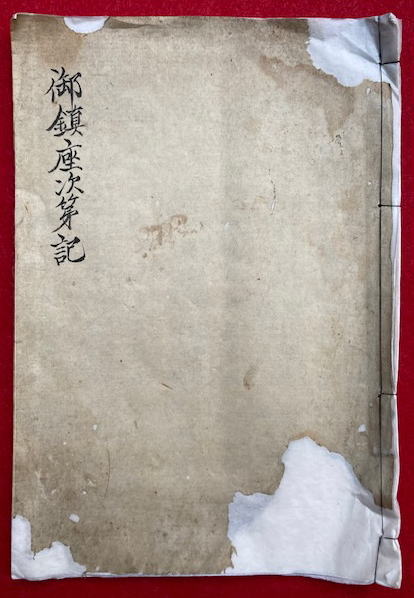 御鎮座次第記